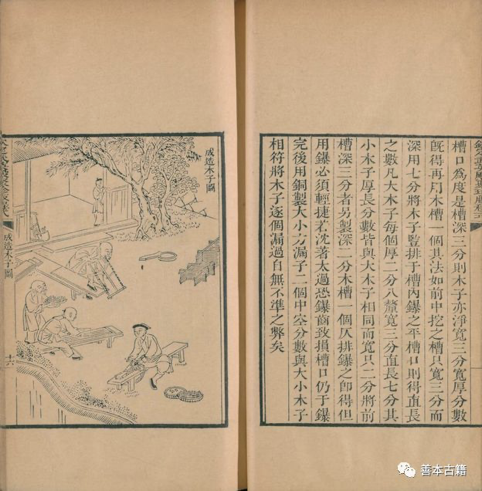 槽口為度是槽深三分則木子亦淨寬三分寬厚分數
既得再用木槽一個其法如前中挖之槽只寬三分而
深用七分將木子豎排于槽內鑤之平槽口則得直長
之數凡大木子每個厚二分八釐寬三分直長七分其
小木子厚長分數皆與大木子相同而寬只二分將前
槽深三分者另製深二分木槽一個仄排鑤之卽得但
用鑤必須輕捷若沈著太過恐鑤致損槽口仍于鑤
完後用銅製大小方漏子二個中空分數與大小木子
相符將木子逐個漏過自無不準之弊矣
成造木子圖
成造木子圖
十六
善本古籍